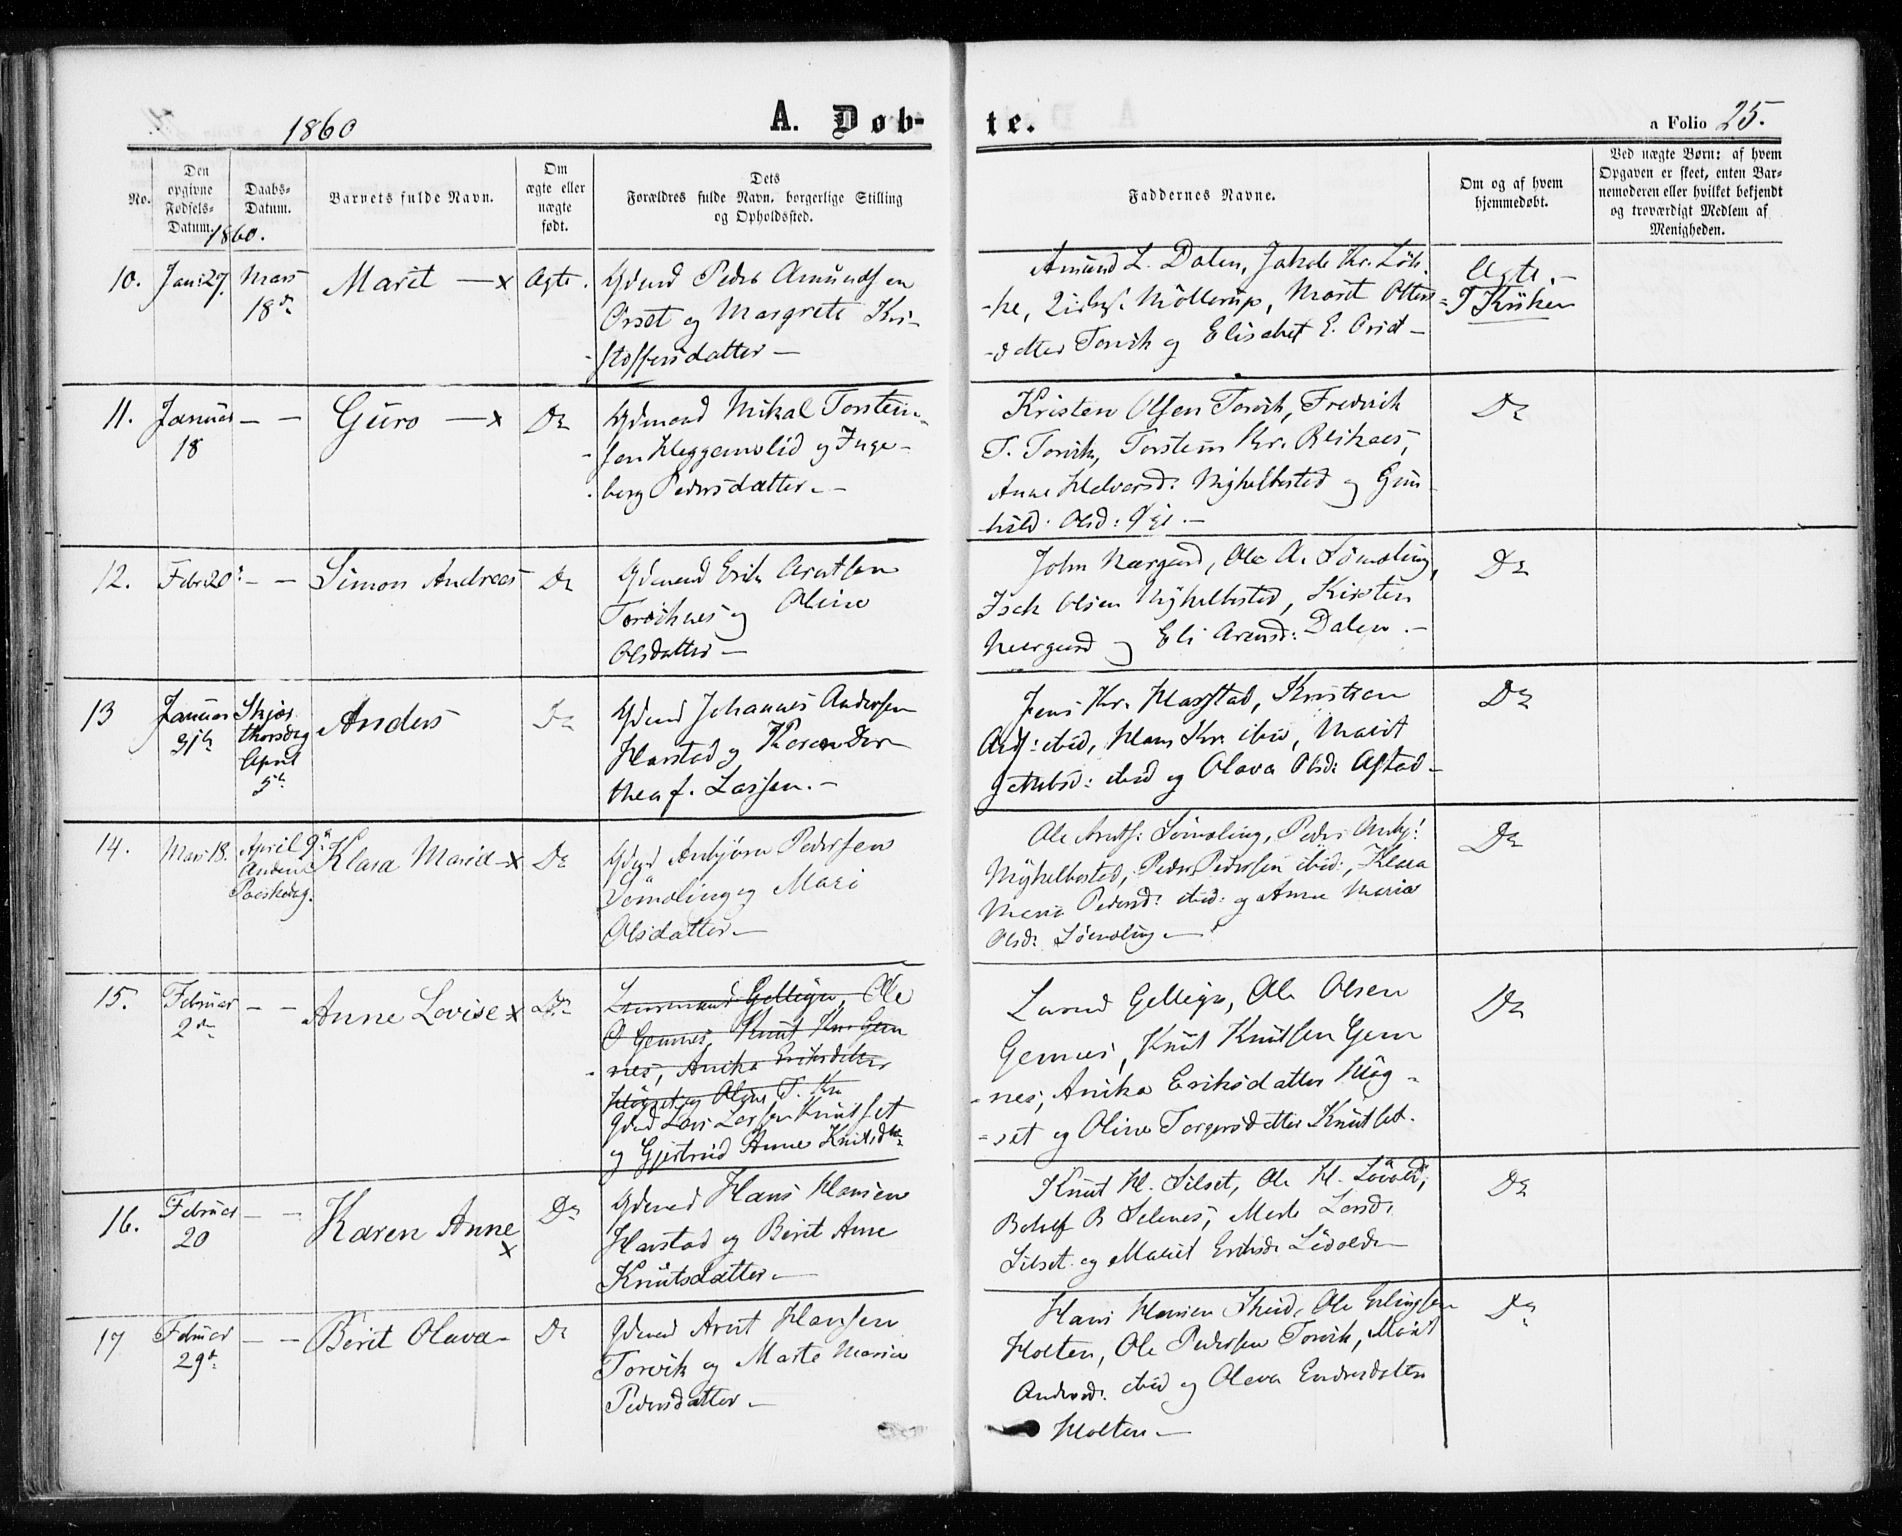 1860
A. Døb-
te.
a Folio 25.
No.
Den
opgivne
Fødsels-
Datum.
Daabs-
Datum.
Barnets fulde Navn.
Om
ægte eller
uægte
født.
Dets
Forældres fulde Navn, borgerlige Stilling
og Opholdssted.
Faddernes Navne.
Om og af hvem
hjemmedøbt.
Ved uægte Børn: af hvem
Opgaven er skeet, enten Bar-
nemoderen eller hvilket bekjendt
og troværdigt Medlem af
Menigheden.
1860.
10.
Jan: 27.
Mars
18de
Marit — x
Ægte.
Gdmd Peder Amundsen
Orset og Margrete Kri-
stoffersdatter —
Amund L. Dalen, Jakob Kr.
Möllerup, Marit Olters
datter Torvik og Elisabet E.
Ægte. —
I Kirken
11.
Januar
18
— —
Guro — x
Do
Gdmand Mikal Torstein-
sen Heggemslid og Inge-
berg Pedersdatter. —
Kristen Olsen Torvik, Frederik
T. Torvik, Torstein Kr.
Anne Halvorsd: Myhelbostad og Gun
hild Olsd: Øie. —
Do
12.
Febr 20:
— —
Simon Andreas
Do
Gdmand Erik Arntsen
Torviknes og Oline
Olsdatter —
John Nergard, Ole A. Sømoling,
Isak Olsen Myhelbostad, Kirsten
Nergard og Eli Arensd: Dalen. —
Do
13
Januar
31te
Skjær
thorsdag
April
5te
Anders
Do
Gdmd Johannes Andersen
Harstad og Karen Dor
thea f. Lassen. —
Jens Kr. Harstad, Kristian
ibid, Hans Kr. ibid, Marit
Jakobsd: ibid og Olava Olsd: Astad —
Do
14.
Mars 18.
April 9de
Anden
Paaskedag.
Klara Marie — x
Do
Gdmd Anbjørn Pedersen
Sømoling og Mari
Olsdatter —
Ole Arnts: Sømoling, Peder Anbj:
Myhelbostad, Peder Pedersen ibid:, Klara
Maria Pedersd: ibid: og Anne Maria
Olsd: Sömoling —
Do
15.
Februar
2den
— —
Anne Lovise x
Do
Lensmand Gelleign, Ole
O Gemnes, Knut Knr Gem
nes, Anika Eriksdatter
Högset og Oline T. Kn
Gdmd Lars Larsen Knutset
og Gjertrud Anne Knutsdtr
Lensmd Gelleign, Ole Olsen
Gemnes, Knut Knutsen Gem
nes, Anika Eriksdatter Hög-
set og Oline Torgersdatter Knutset.
Do
16.
Februar
20
— —
Karen Anne
x
Do
Gdmand Hans Hansen
Harstad og Berit Anne
Knutsdatter —
Knut H. Silset, Ole H. Lövold,
B Silnes, Larsd:
Silset og Marit Eriksd: Lövold —
Do
17
Februar
29de
— —
Berit Olava —
Do
Gdmand Arnt Hansen
Torvik og Marte Maria
Pedersdatter —
Hans Hansen Ole Erlingsen
Holten, Ole Pedersen Torvik, Marit
Andersd: ibid og Olava Endresdatter
Holten —
Do